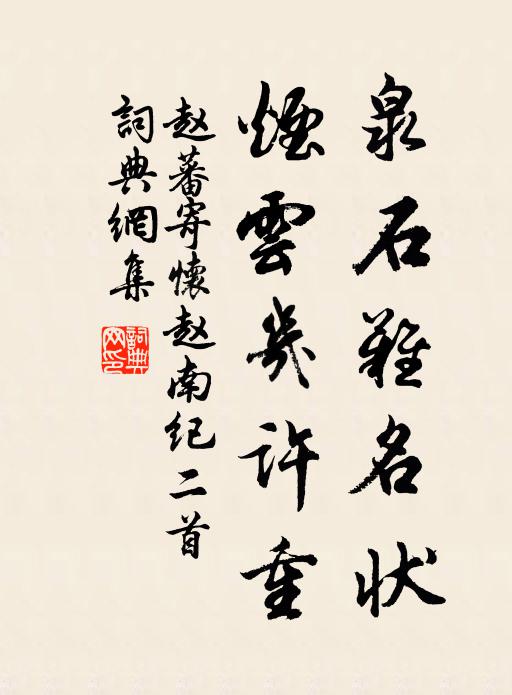 泉石難名状
煙雲幾許重
赵蕃寄懷赵南紀二首
詞典網集
詞典网印